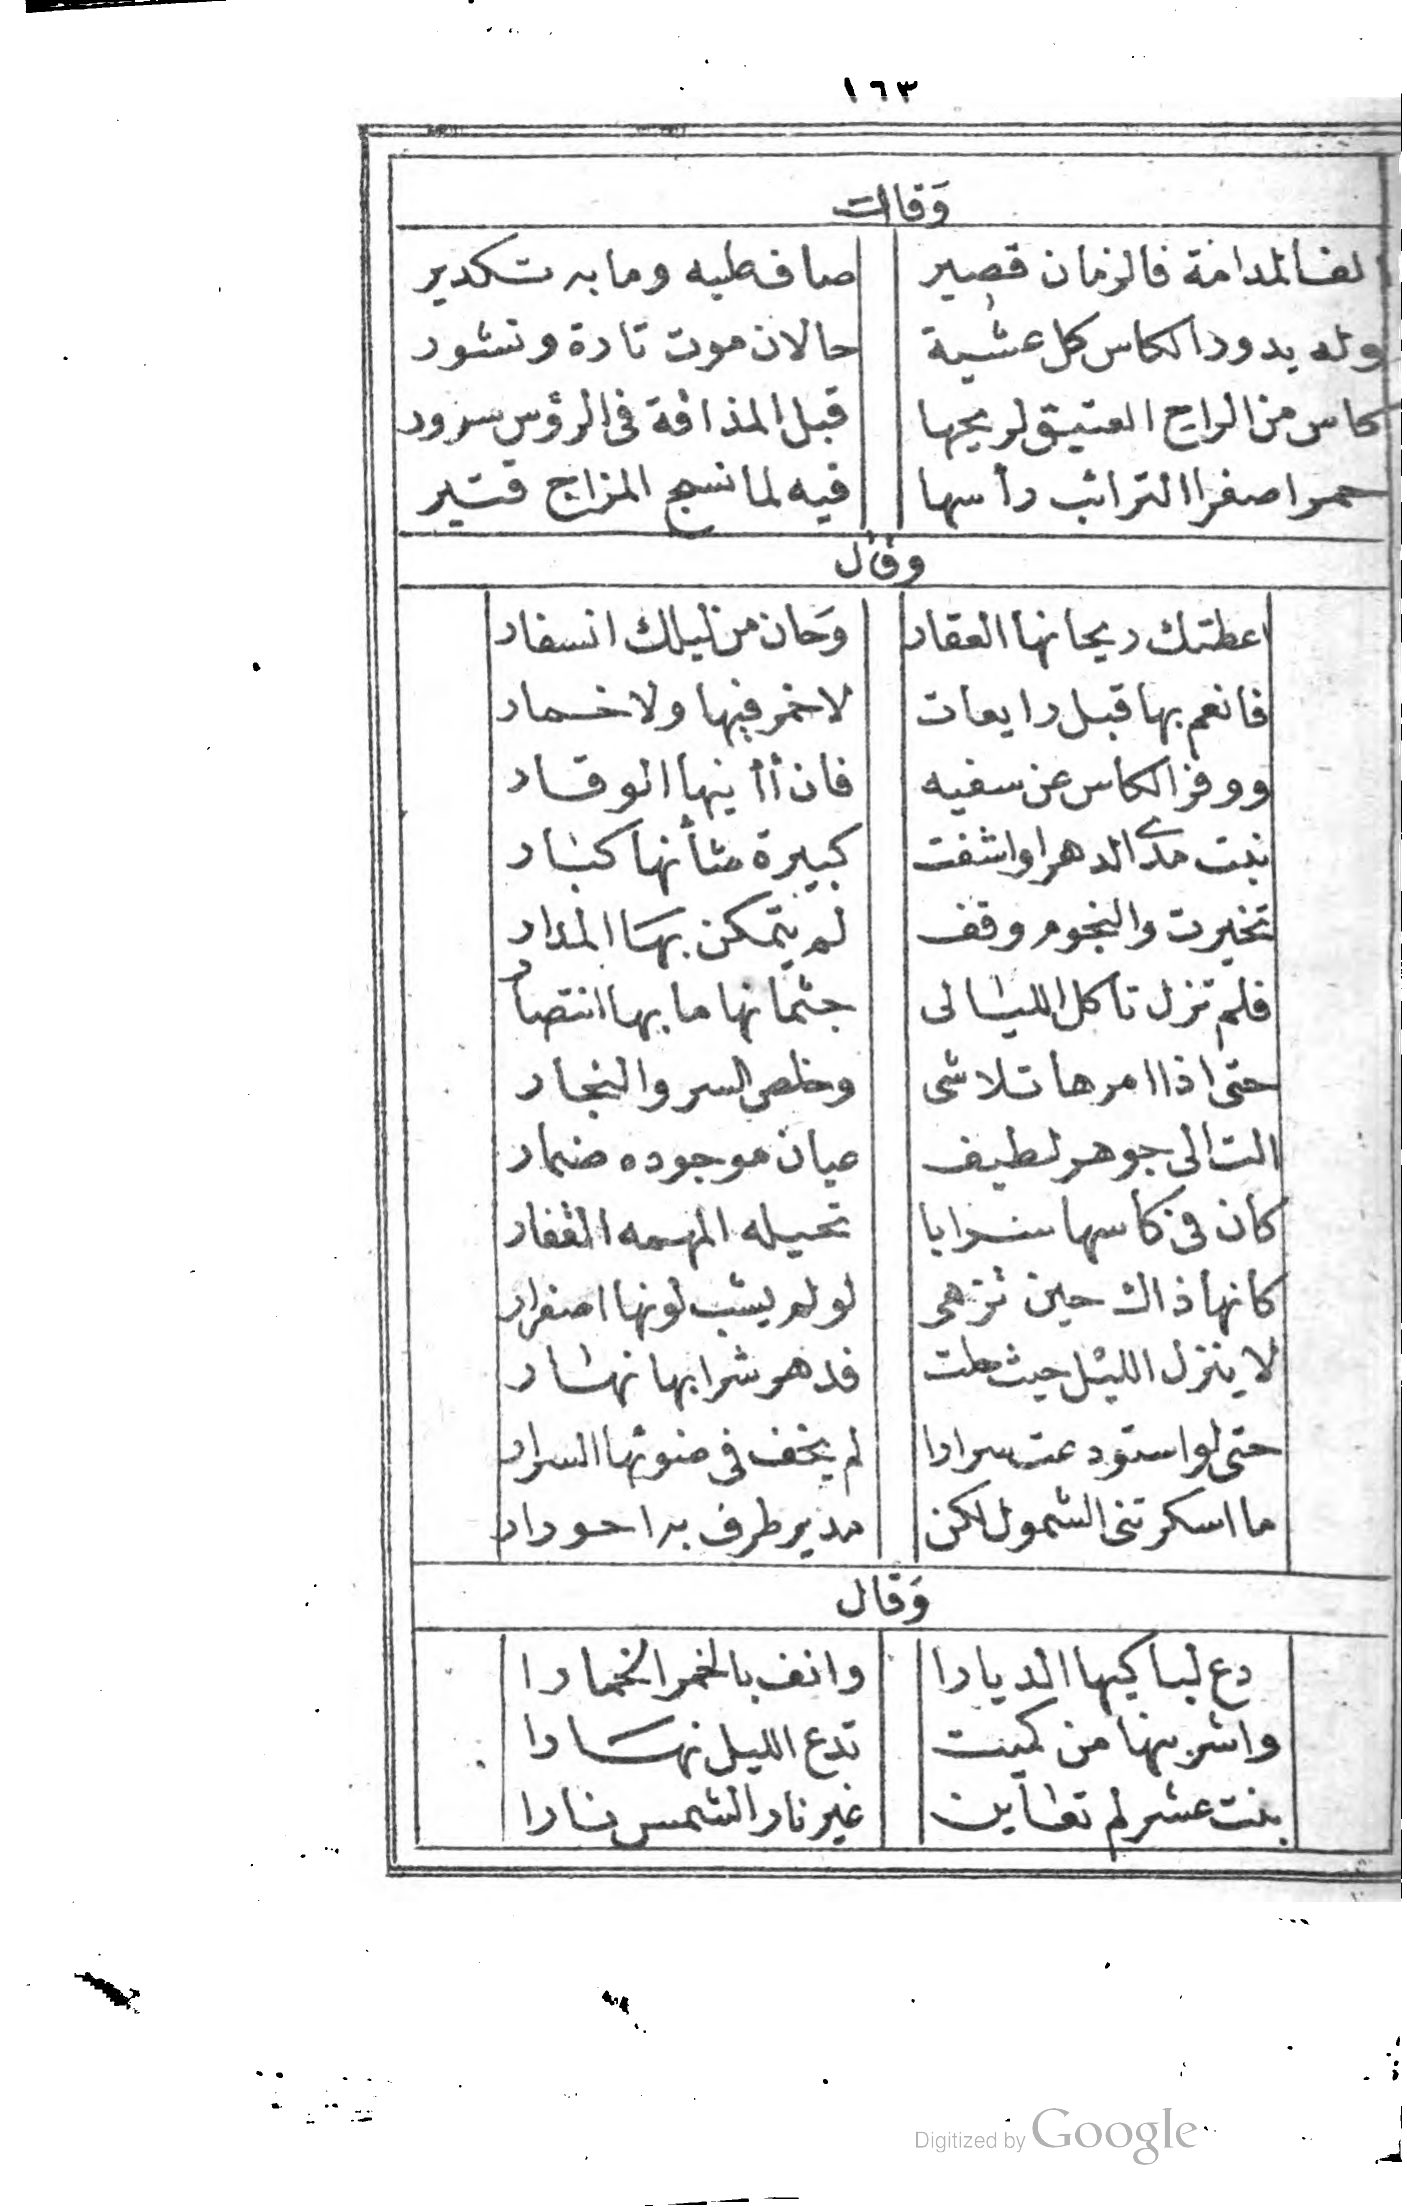 ١٦٣
وَقال
الف المدامة فالزمان قصير صاف عليه وما به تكدير
وله يدور الكاس كل عشية حالان موت تارة ونشور
كاس من الراح العتيق لريحها قبل المذاقة فى الرؤس سرور
حمرا صفرا الترائب رأسها فيه لما نسج المزاج قتير
وقال
اعطتك ريحانها العقار وَحان من ليلك انسفار
فانعم بها قبل رايعات لاخمر فيها ولا خمار
ووقر الكاس عن سفيه فان أأينها الوقار
بنت مدى الدهر او اشفت كبيرة شأنها كبار
تخيرت والنجوم وقف لم يتمكن بها المدار
فلم تزل تاكل الليالى جثمانها ما بها انتصار
حتى اذا امرها تلاشى وخلص السر والنجار
الت الى جوهر لطيف عيان موجوده ضمار
كان فى كاسها سرابا تحيله المهمه القفار
كانها ذاك حين تزهى لو لم يشب لونها اصفرار
لا ينزل الليل حيث حلت فدهر شرابها نهار
حتى لو استودعت سرارا لم يخف فى ضوئها السرار
ما اسكرتنى الشمول لكن مدير طرف به احورار
وَقال
دع لباكيها الديارا وانف بالخمر الخمارا
واشربنها من كميت تدع الليل نهارا
بنت عشر لم تعاين غير نار الشمس نارا
Digitized by Google